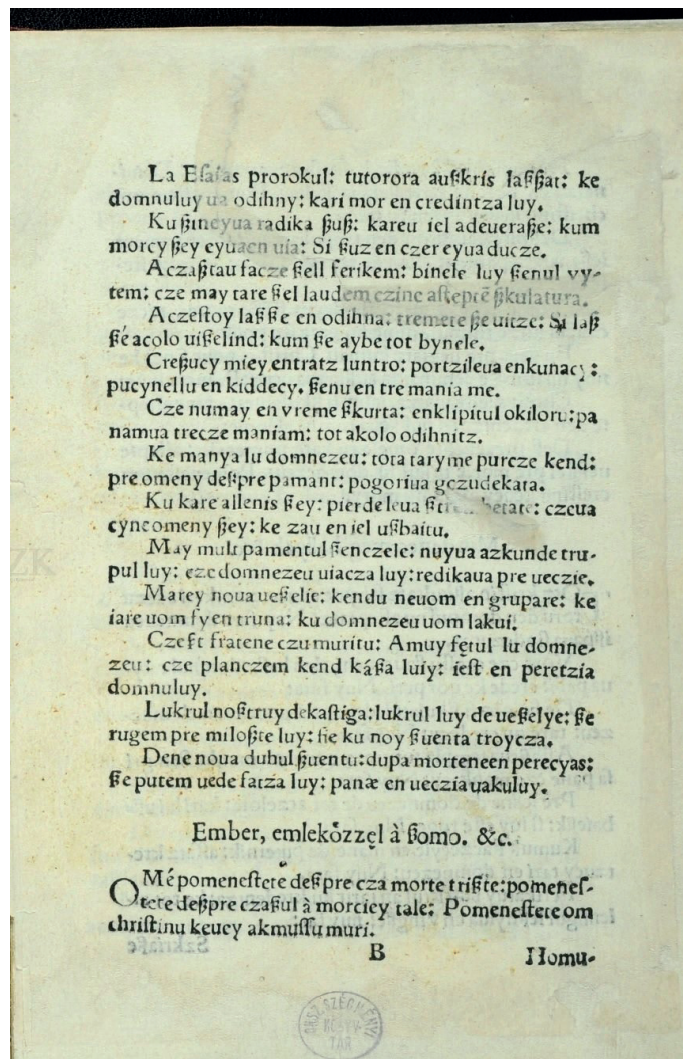 La Eſaias prorokul: tutorora auſkris laſſat: ke
domnuluy ua odihny: kari mor en credintza luy.
Ku ßineyua radika ßuß: kareu iel adeueraße: kum
morcy ßey eyuaen uia: Si ßuz en czer eyua ducze.
Aczaßtau facze ßell ferikem: binele luy ßenul vy-
tem: cze may tare ßel laudem czine aſtepte ßkulatura.
Aczeſtoy laßße en odihna: tremete ße uitze: Si laß
ßé acolo uißelind: kum ße aybe tot bynele.
Creßucy miey entratz luntro: portzileua enkunacy:
pucynellu en kiddecy. ßenu en tre mania me.
Cze numay en vreme ßkurta: enklipitul okiloru: pa
namua trecze maniam: tot akolo odihnitz.
Ke manya lu domnezeu: tota taryme purcze kend:
pre omeny deßpre pamant: pogoriua gczudekata.
Ku kare allenis ßey: pierdeleua czeua
cyneomeny ßey: ke zau en iel ußbaitu.
May mult pamentul ßenczele: nuyua azkunde tru-
pul luy: cze domnezeu uiacza luy: redikaua pre ueczie.
Marey noua ueßelie: kendu neuom en grupare: ke
iare uom fy en truna: ku domnezeu uom lakui.
Czeſt fratene czu muritu: Amuy fetul lu domne-
zeu: cze planczem kend káßa luiy: ieſt en peretzia
domnuluy.
Lukrul noſtruy dekaſtiga: lukrul luy de ueßelye: ße
rugem pre miloßte luy: fie ku noy ßuenta troycza.
Dene noua duhul ßuentu: dupa morteneen perecyas:
ße putem uede fatza luy: panæ en ueczia uakuluy.
Ember, emlekőzzel à ßomo. &c.
OMé pomeneſtete deßpre cza morte trißte: pomeneſ-
tete deßpre czaßul à morciey tale: Pomeneſtete om
chriſtinu keucy akmuſſu muri.
B Homu-
ORSZ. SZÉCHÉNYI
KÖNYV-
TÁR